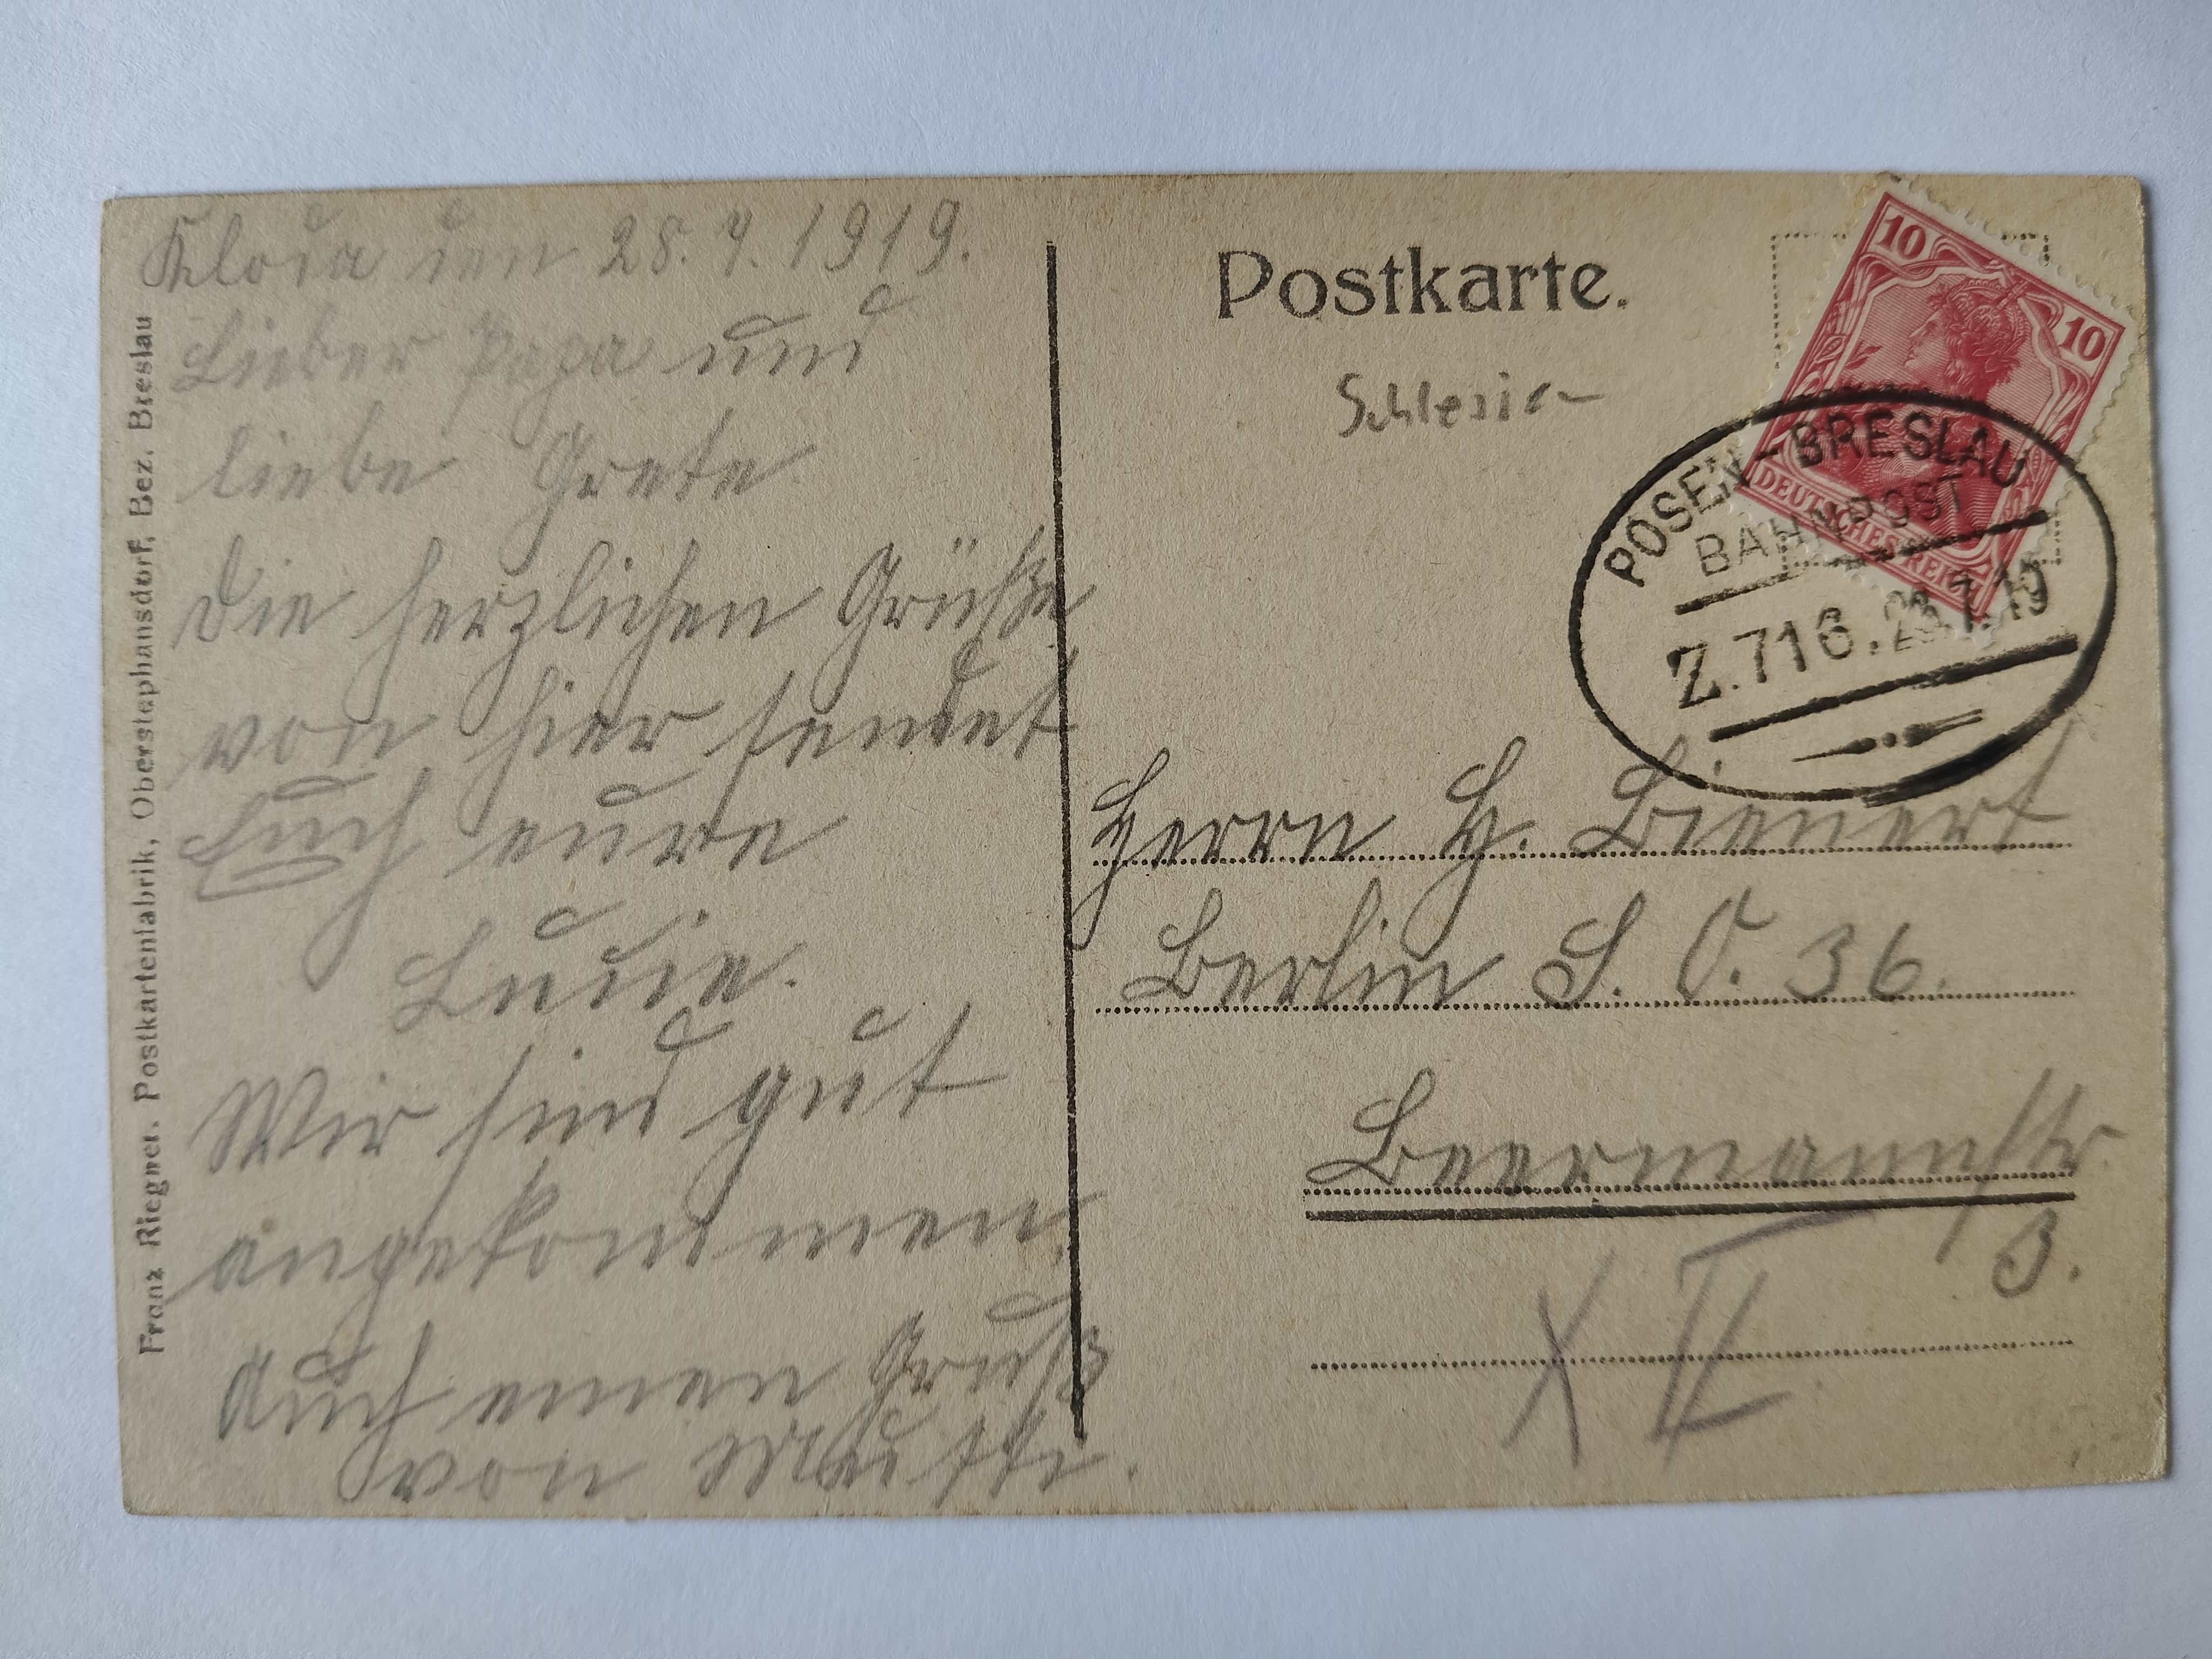 Kloda den 28.7.1919.
Lieber Papa und
liebe Grete
Die herzlichen Grüße
von hier sendet
Euch eure
Luzie.
Wir sind gut
angekommen.
Auch einen Gruß
von Mutti.
Franz Riegner, Postkartenfabrik, Oberstephansdorf, Bez. Breslau
Postkarte.
Schlesien
10
10
DEUTSCHES REICH
POSEN-BRESLAU
BAHNPOST
Z.716.28.7.19
Herrn H. Bienert
Berlin S. O. 36.
Beermannstr.
3.